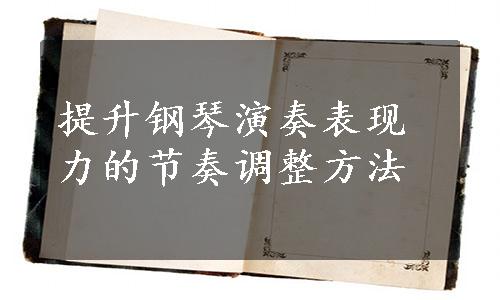 提升钢琴演奏表现
力的节奏调整方法